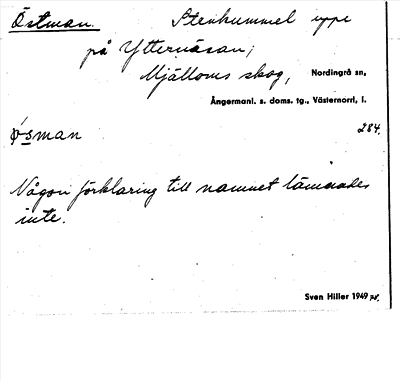 Östman. Stenkummel uppe
på Ytternäsan,
Mjälloms skog, Nordingrå sn,
Ångermanl. s. doms. tg., Västernorrl, l.
284.
Någon förklaring till namnet lämnades
inte.
Sven Hiller 1949